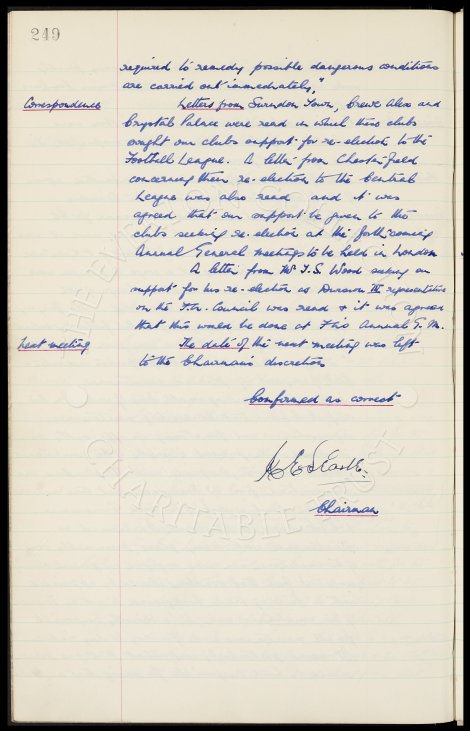 249
required to remedy possible dangerous conditions
are carried out immediately."
Correspondence
Letters from Swindon Town, Crewe Alex and
Crystal Palace were read in which these clubs
sought our clubs support for re-election to the
Football League. A letter from Chesterfield
concerning their re-election to the Central
League was also read and it was
agreed that our support be given to the
clubs seeking re-election at the forthcoming
Annual General meetings to be held in London
A letter from Mr F.S. Wood seeking our
support for his re-election as Division representative
on the F.A. Council was read & it was agreed
that this would be done at this Annual G.M.
Next meeting
The date of the next meeting was left
to the Chairman's discretion
Confirmed as correct
Chairman
THE EVERTON
CHARITABLE TRUST